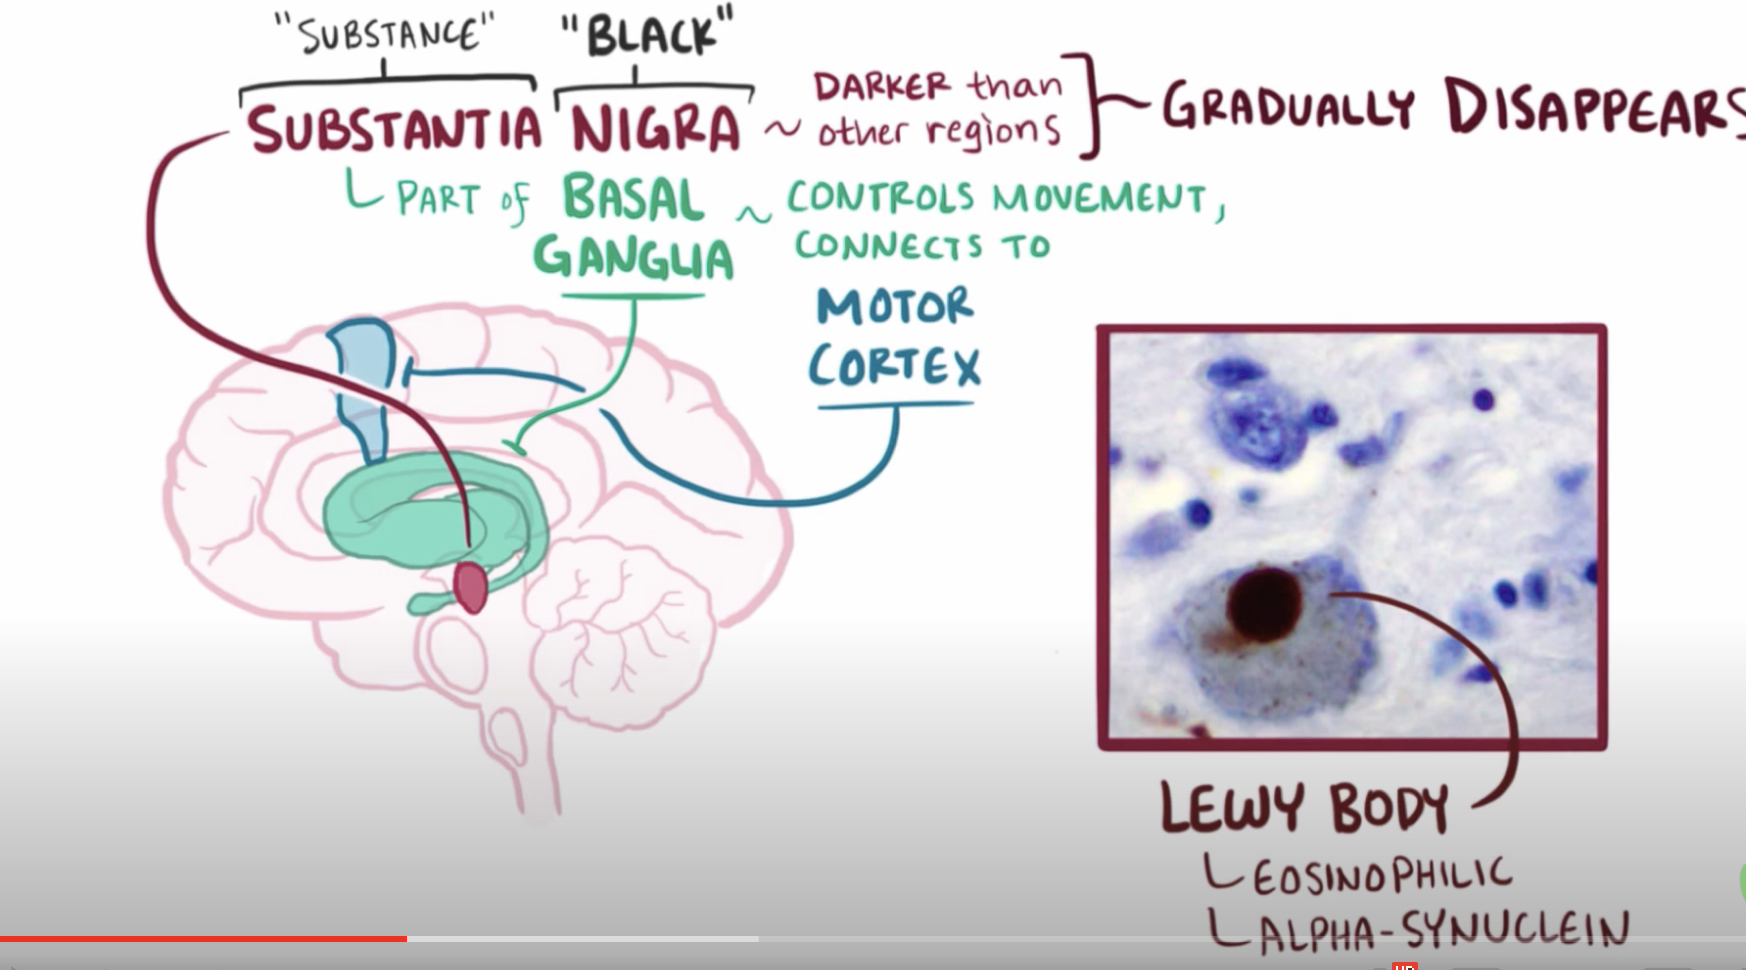 "SUBSTANCE" "BLACK"
SUBSTANTIA NIGRA ~ DARKER than
other regions
GRADUALLY DISAPPEARS
PART of BASAL
GANGLIA
~ CONTROLS MOVEMENT,
CONNECTS TO
MOTOR
CORTEX
LEWY BODY
EOSINOPHILIC
ALPHA-SYNUCLEIN